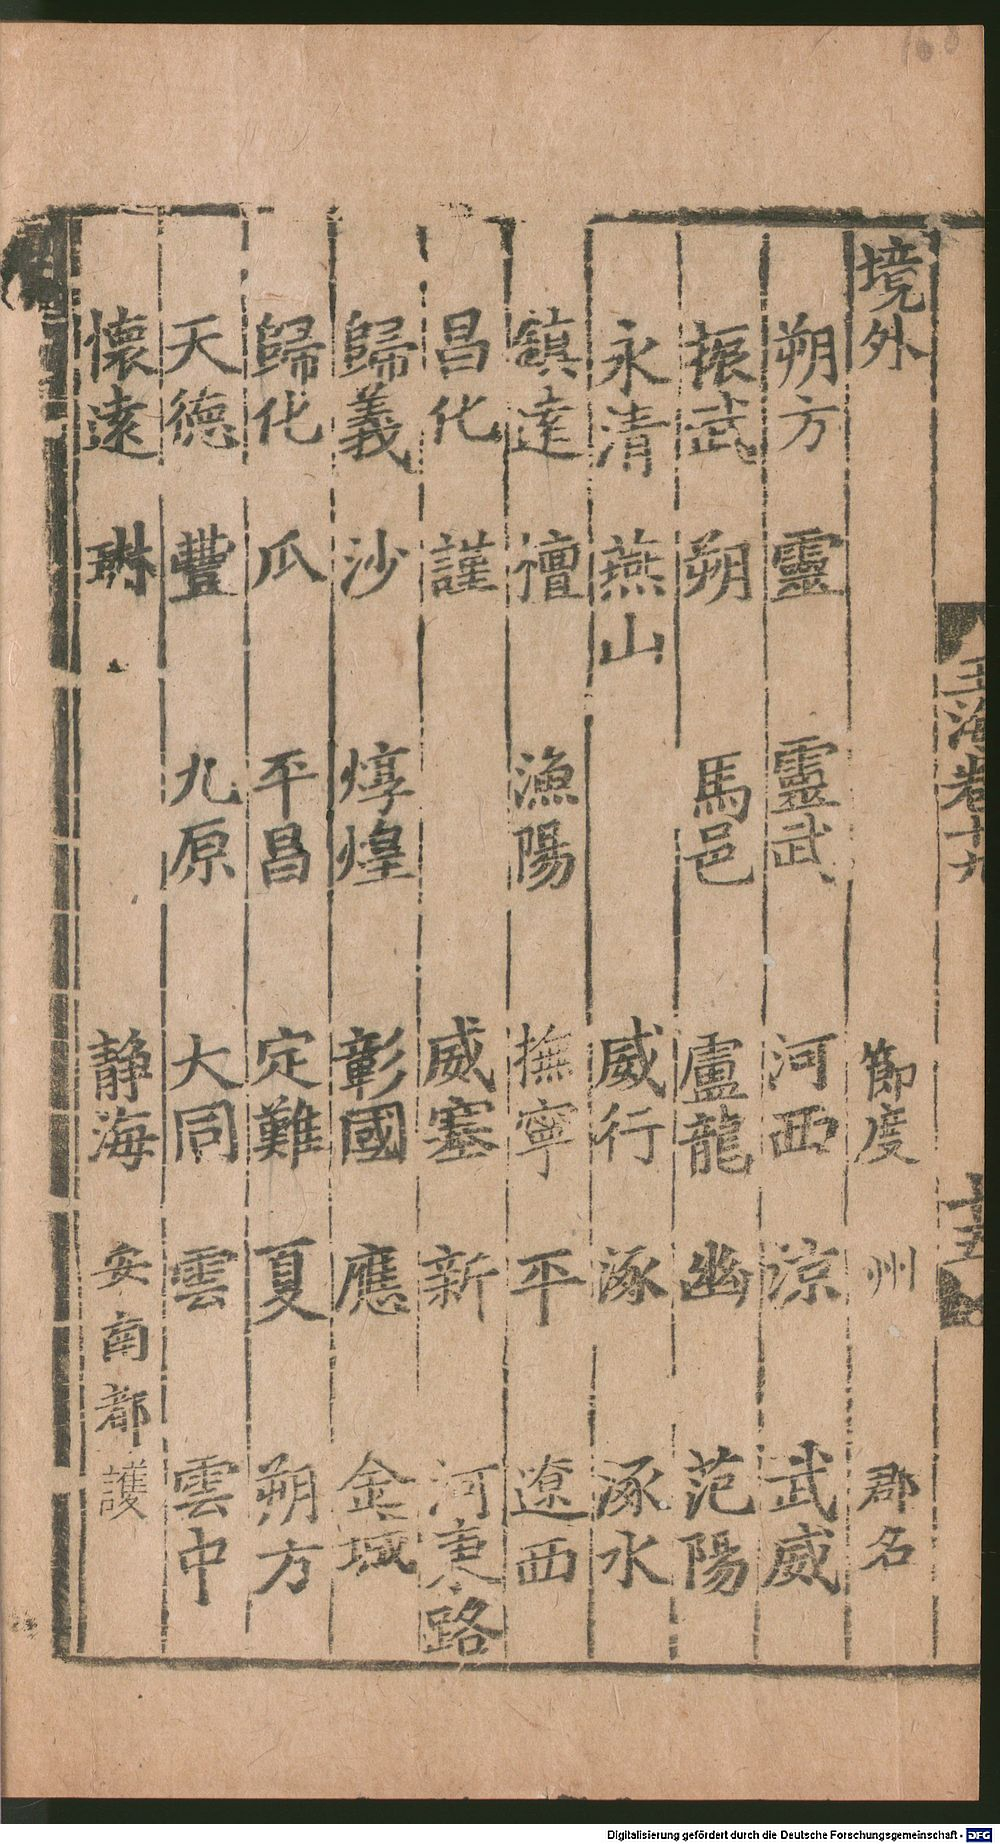 玉海卷十九 十五
境外 節度 州 郡名
朔方 靈 靈武 河西 涼 武威
振武 朔 馬邑 盧龍 幽 范陽
永清 燕山 威行 涿 涿水
鎮遠 檀 漁陽 撫寧 平 遼西
昌化 謹 威塞 新 河東路
歸義 沙 焞煌 彰國 應 金城
歸化 瓜 平昌 定難 夏 朔方
天德 豐 九原 大同 雲 雲中
懷遠 琳 静海 安南都護
Digitalisierung gefördert durch die Deutsche Forschungsgemeinschaft - DFG